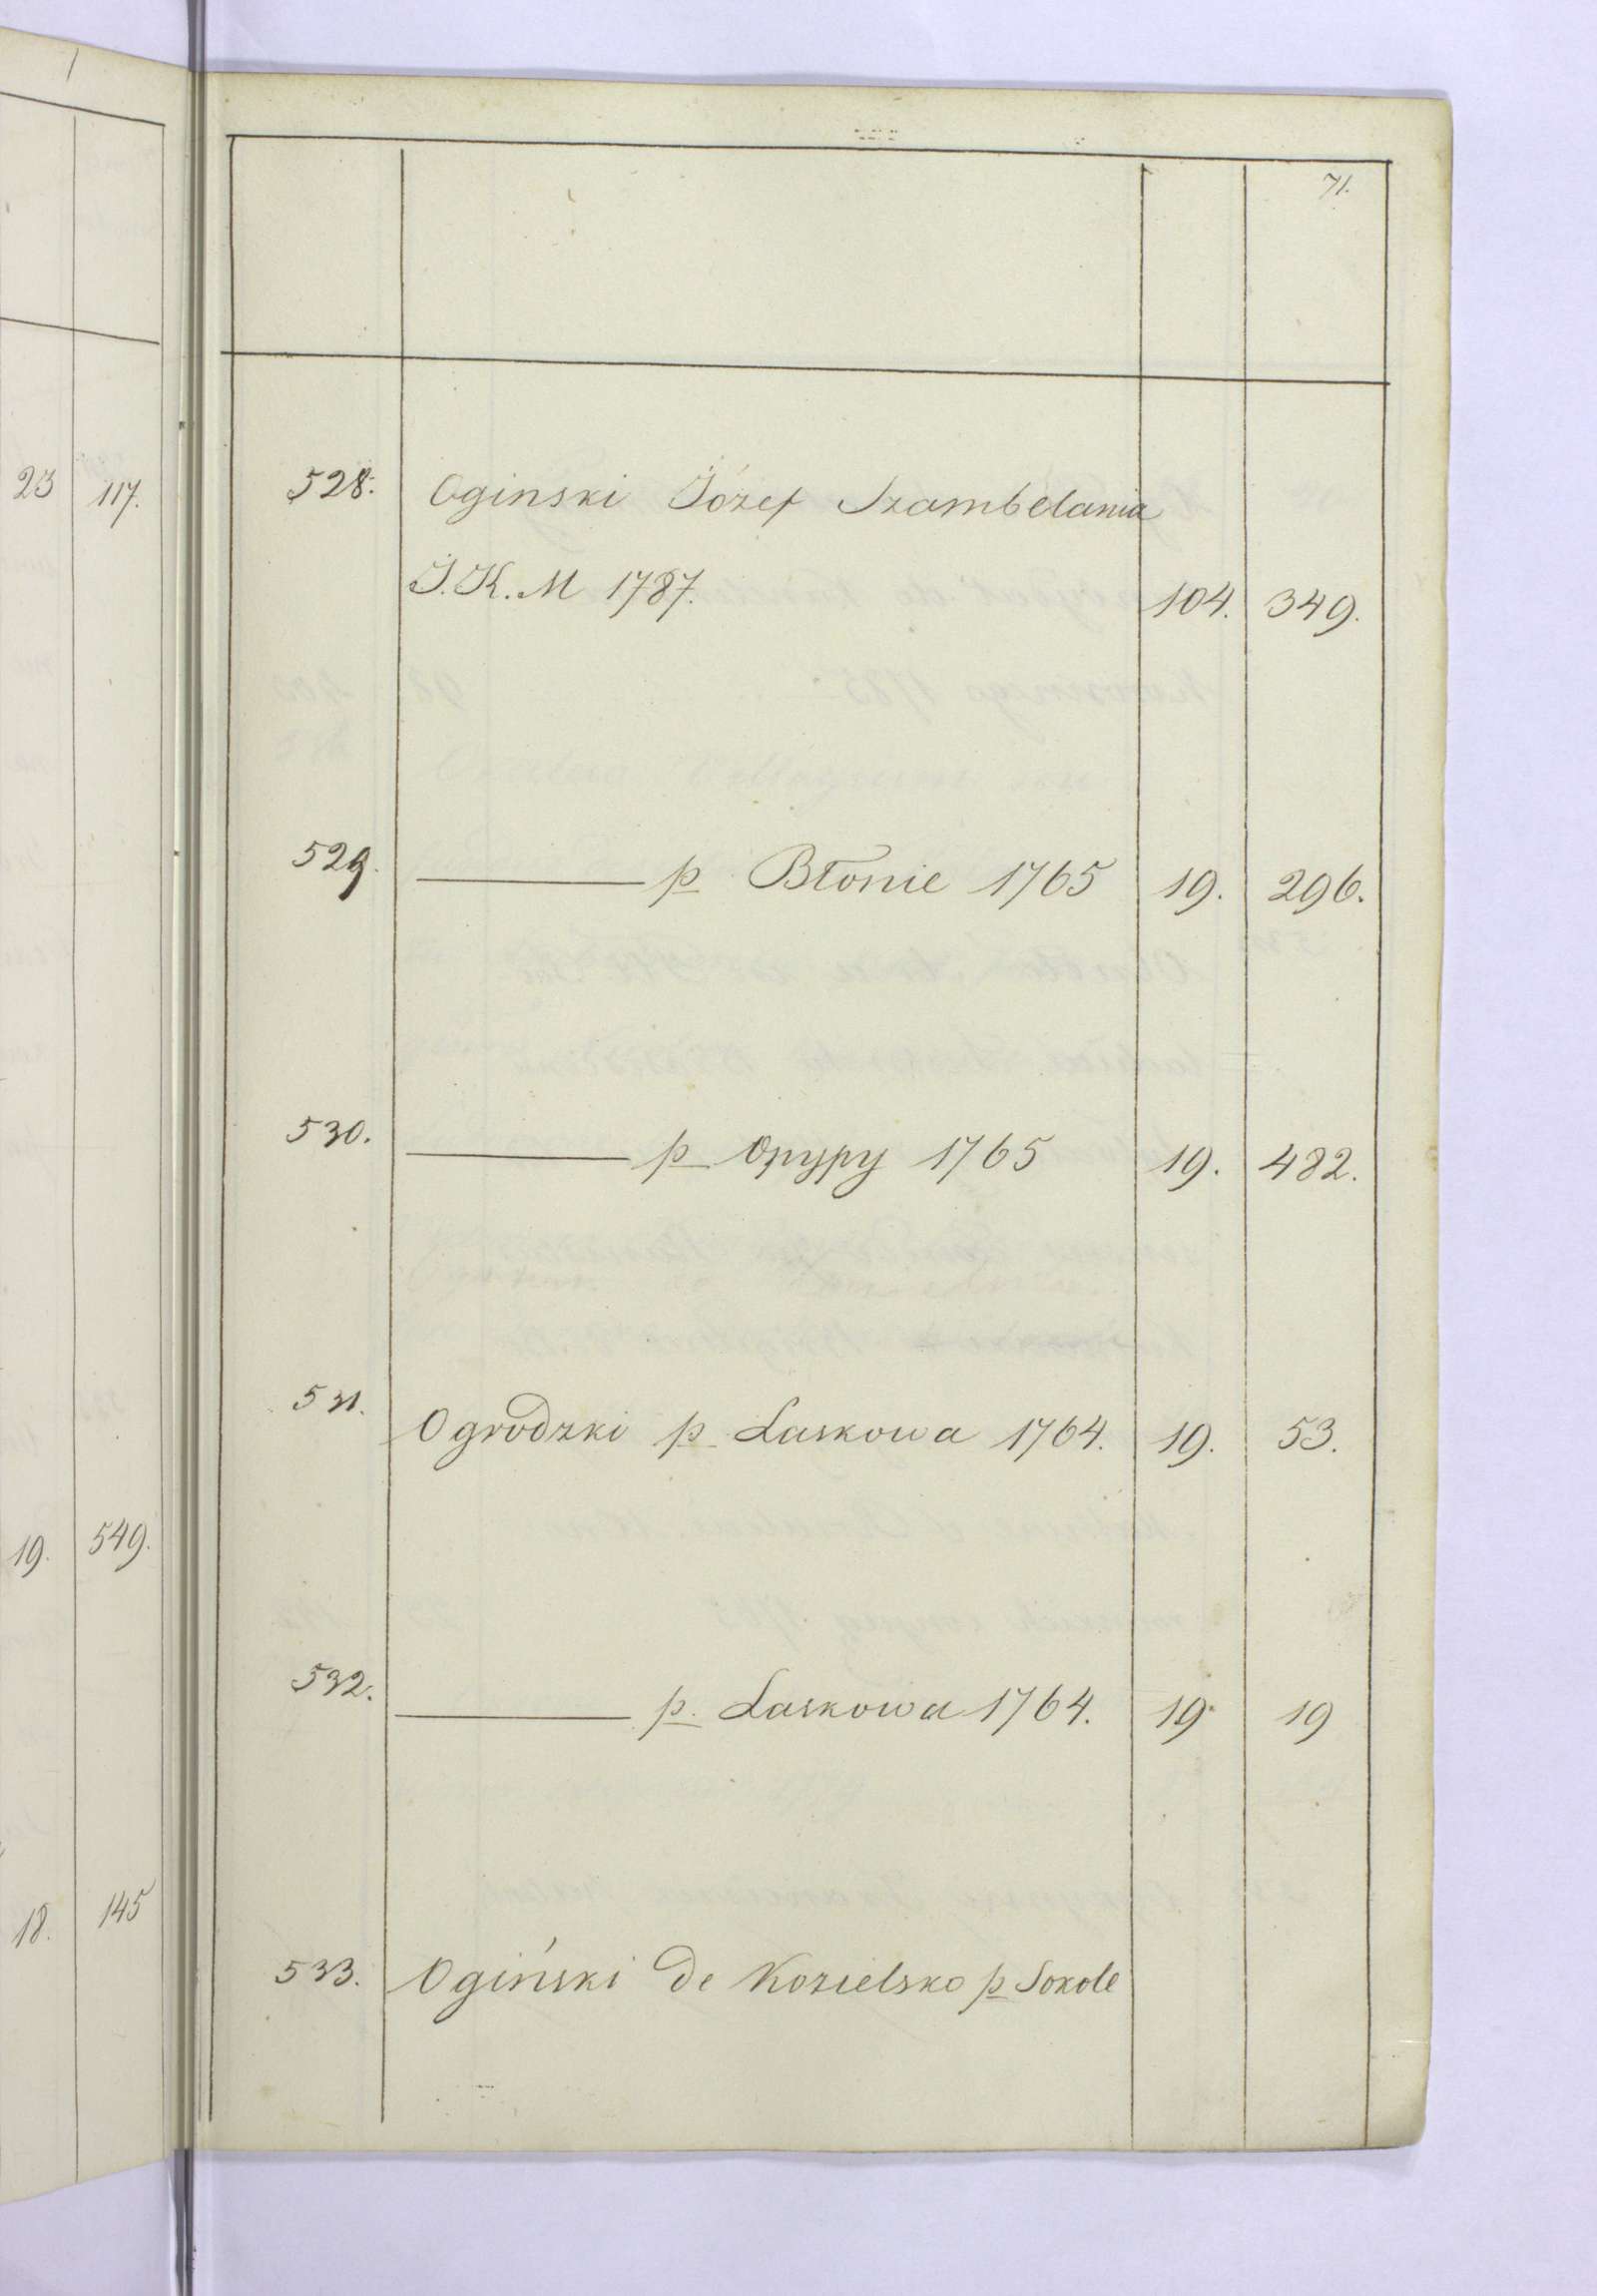 71.
23 117.
528. Oginski Józef Szambelania
J. K. M 1787. 104. 349.
529. ——— p Błonie 1765 19. 296.
530. ——— p Opypy 1765 19. 482.
531. Ogrodzki p Laskowa 1764. 19. 53.
19. 549.
532. ——— p. Laskowa 1764. 19. 19
18. 145
533. Ogiński de Kozielsko p Sokole